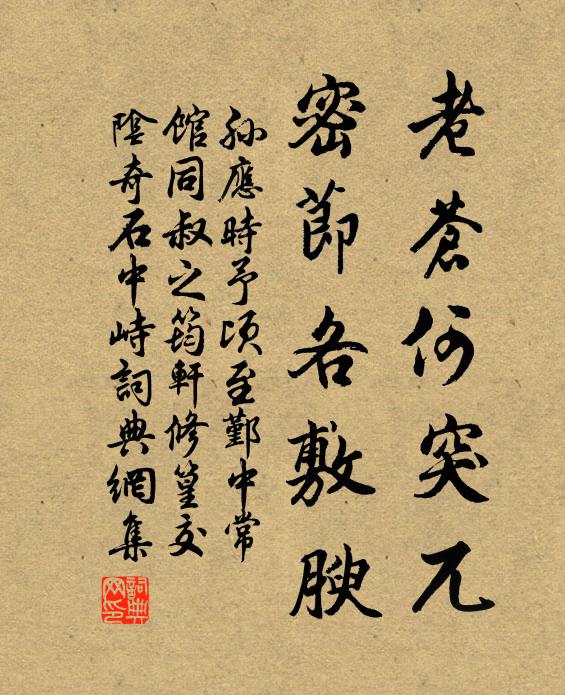 老蒼何突兀
密節各敷腴
孙應時予頃至鄞中常
館同叔之筠軒修篁交
陰奇石中峙詞典網集
詞典网印